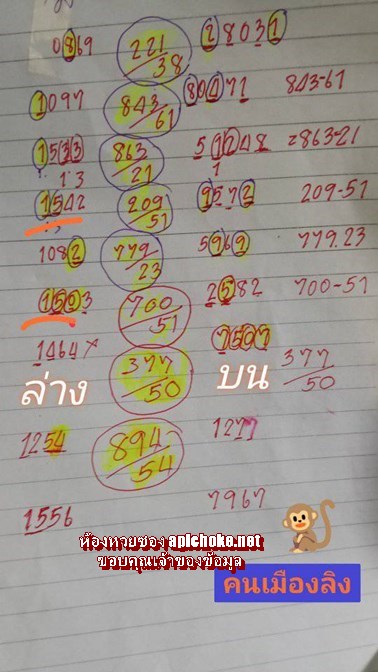 0869 221/38 28031
1097 843/61 80471 843-61
1533 863/21 51248 =863-21
13 1
1542 209/51 9572 209-51
1082 779/23 5969 779.23
1503 700/51 2582 700-51
1464x 377/50 7507 377/50
ล่าง บน
1254 894/54 1277
1556 7967
ห้องหวยซอง apichoke.net
ขอบคุณเจ้าของข้อมูล
คนเมืองลิง